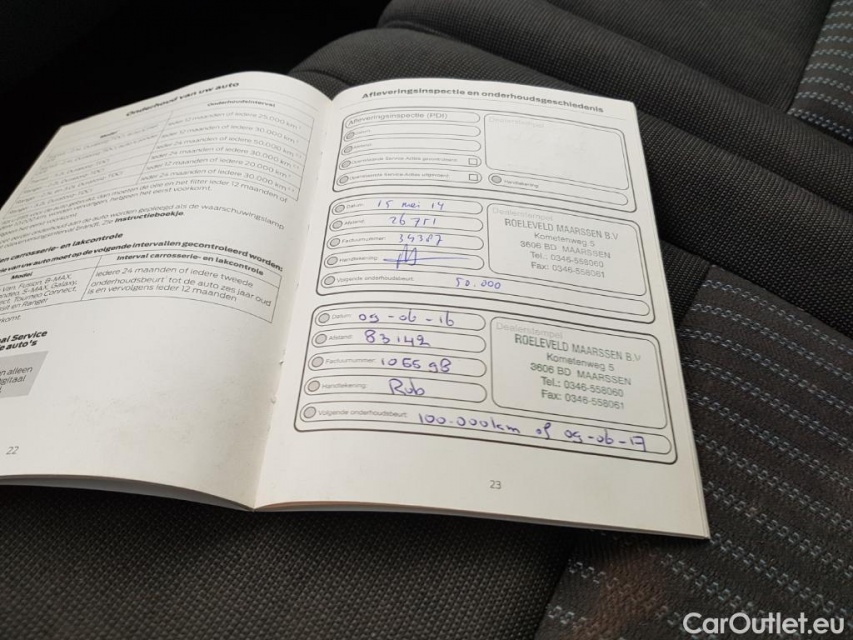 Onderhoud van uw auto
Model
Onderhoudsinterval
Ieder 12 maanden of iedere 25.000 km
Ieder 12 maanden of iedere 30.000 km
Ieder 24 maanden of iedere 50.000 km
Ieder 24 maanden of iedere 30.000 km
Ieder 12 maanden of iedere 20.000 km
Ieder 24 maanden of iedere 30.000 km
moeten de olie en het filter ieder 12 maanden of
worden vervangen, hetgeen het eerst voorkomt.
onderhoud aan de auto worden gepleegd als de waarschuwingslamp
brandt. Zie Instructieboekje.
en carrosserie- en lakcontrole
van uw auto moet op de volgende intervallen gecontroleerd worden:
Model
Interval carrosserie- en lakcontrole
Van, Fusion, B-MAX,
S-MAX, Galaxy,
Tourneo Connect,
en Ranger
Iedere 24 maanden of iedere tweede
onderhoudsbeurt tot de auto zes jaar oud
is en vervolgens ieder 12 maanden
Service
auto's
alleen
22
Afleveringsinspectie en onderhoudsgeschiedenis
Afleveringsinspectie (PDI)
Dealerstempel
Datum:
Handtekening:
Datum: 15 mei 14
Afstand: 26751
Factuurnummer: 34387
Handtekening:
Volgende onderhoudsbeurt: 50.000
Dealerstempel
ROELEVELD MAARSSEN B.V.
Kometenweg 5
3606 BD MAARSSEN
Tel.: 0346-558060
Fax: 0346-558061
Datum: 09-06-16
Afstand: 83142
Factuurnummer: 105598
Handtekening: Rob
Volgende onderhoudsbeurt: 100.000km of 09-06-17
Dealerstempel
ROELEVELD MAARSSEN B.V.
Kometenweg 5
3606 BD MAARSSEN
Tel.: 0346-558060
Fax: 0346-558061
23
CarOutlet.eu